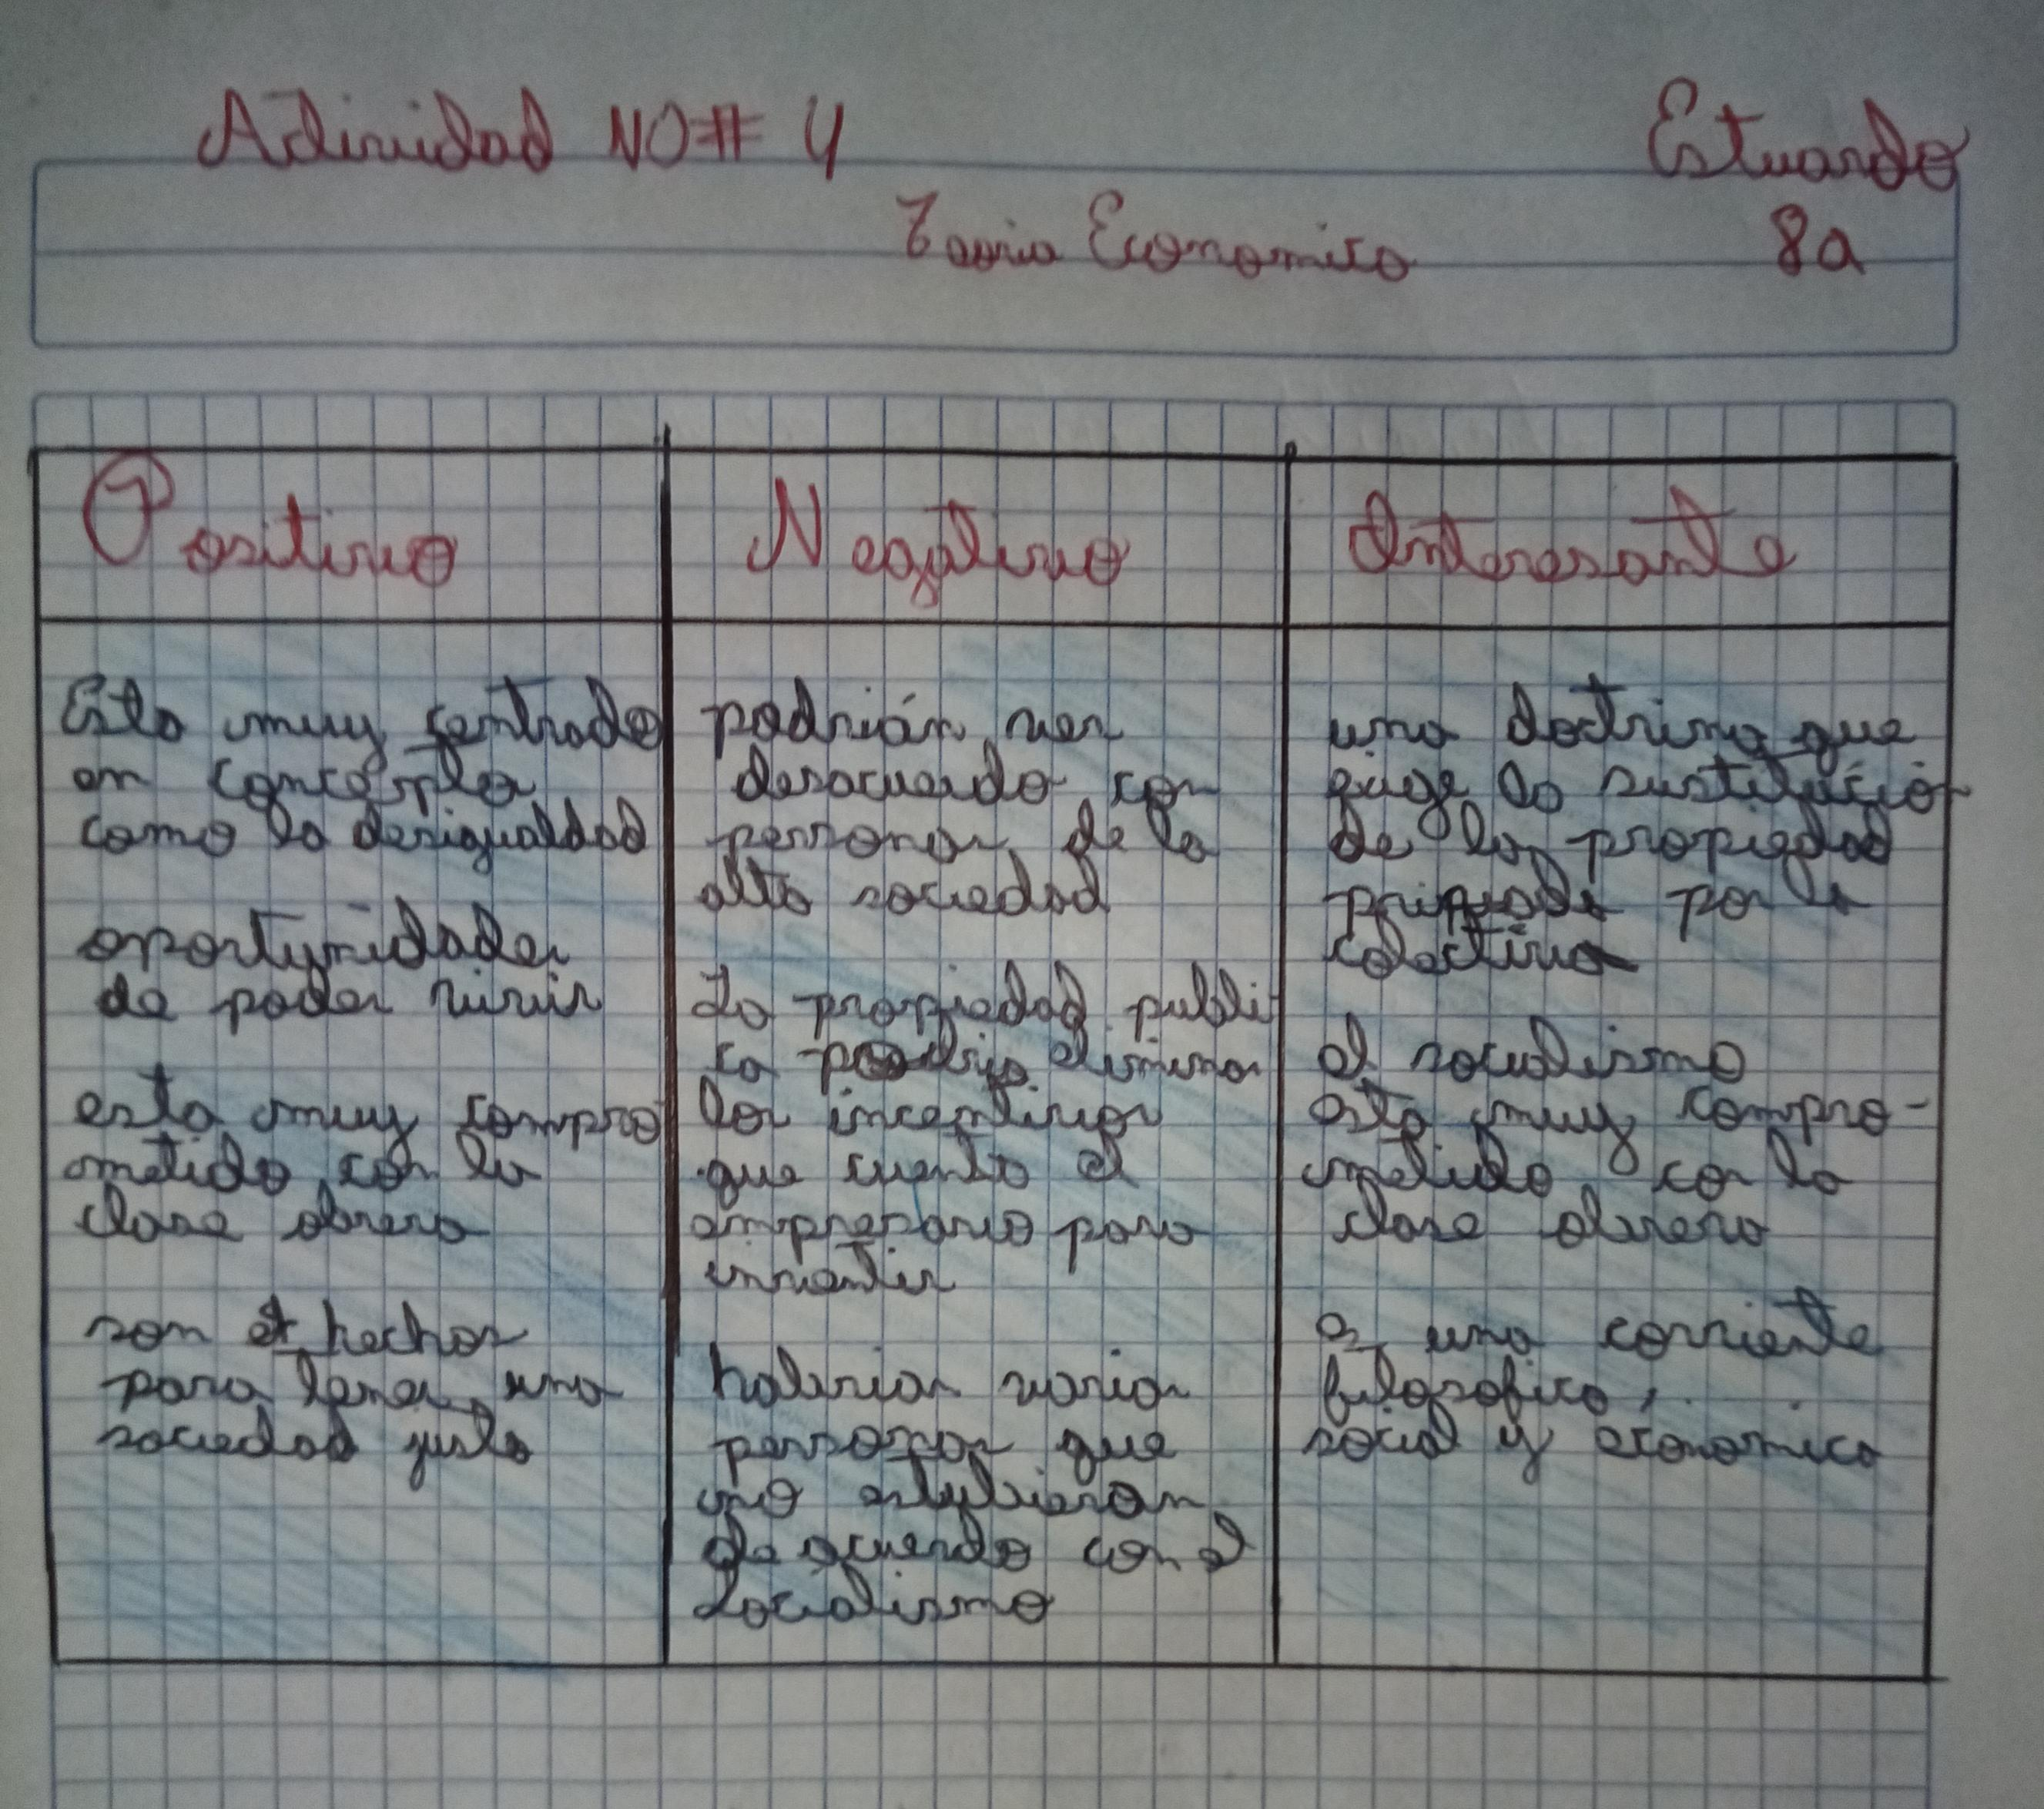 Actividad NO# 4
Estuardo
Teoria Economica
8a
Positivo
Esta muy centrado
en conceptos
como la desigualdad
oportunidades
de poder vivir
esta muy compro
metido con la
clase obrera
son et hechos
para tener una
sociedad justa
Negativo
podrián ver
desacuerdo con
personas de la
alta sociedad
La propiedad publi
ca podria eliminar
los incentivos
que cuenta el
empresario para
invertir
haberias varias
personas que
no estubieran
de acuerdo con el
socialismo
Interesante
una doctrina que
exige la sustitució
de la propiedad
privada por la
colectiva
el socialismo
esta muy compro-
metido con la
clase obrera
es una corriente
filosofica,
social y economica